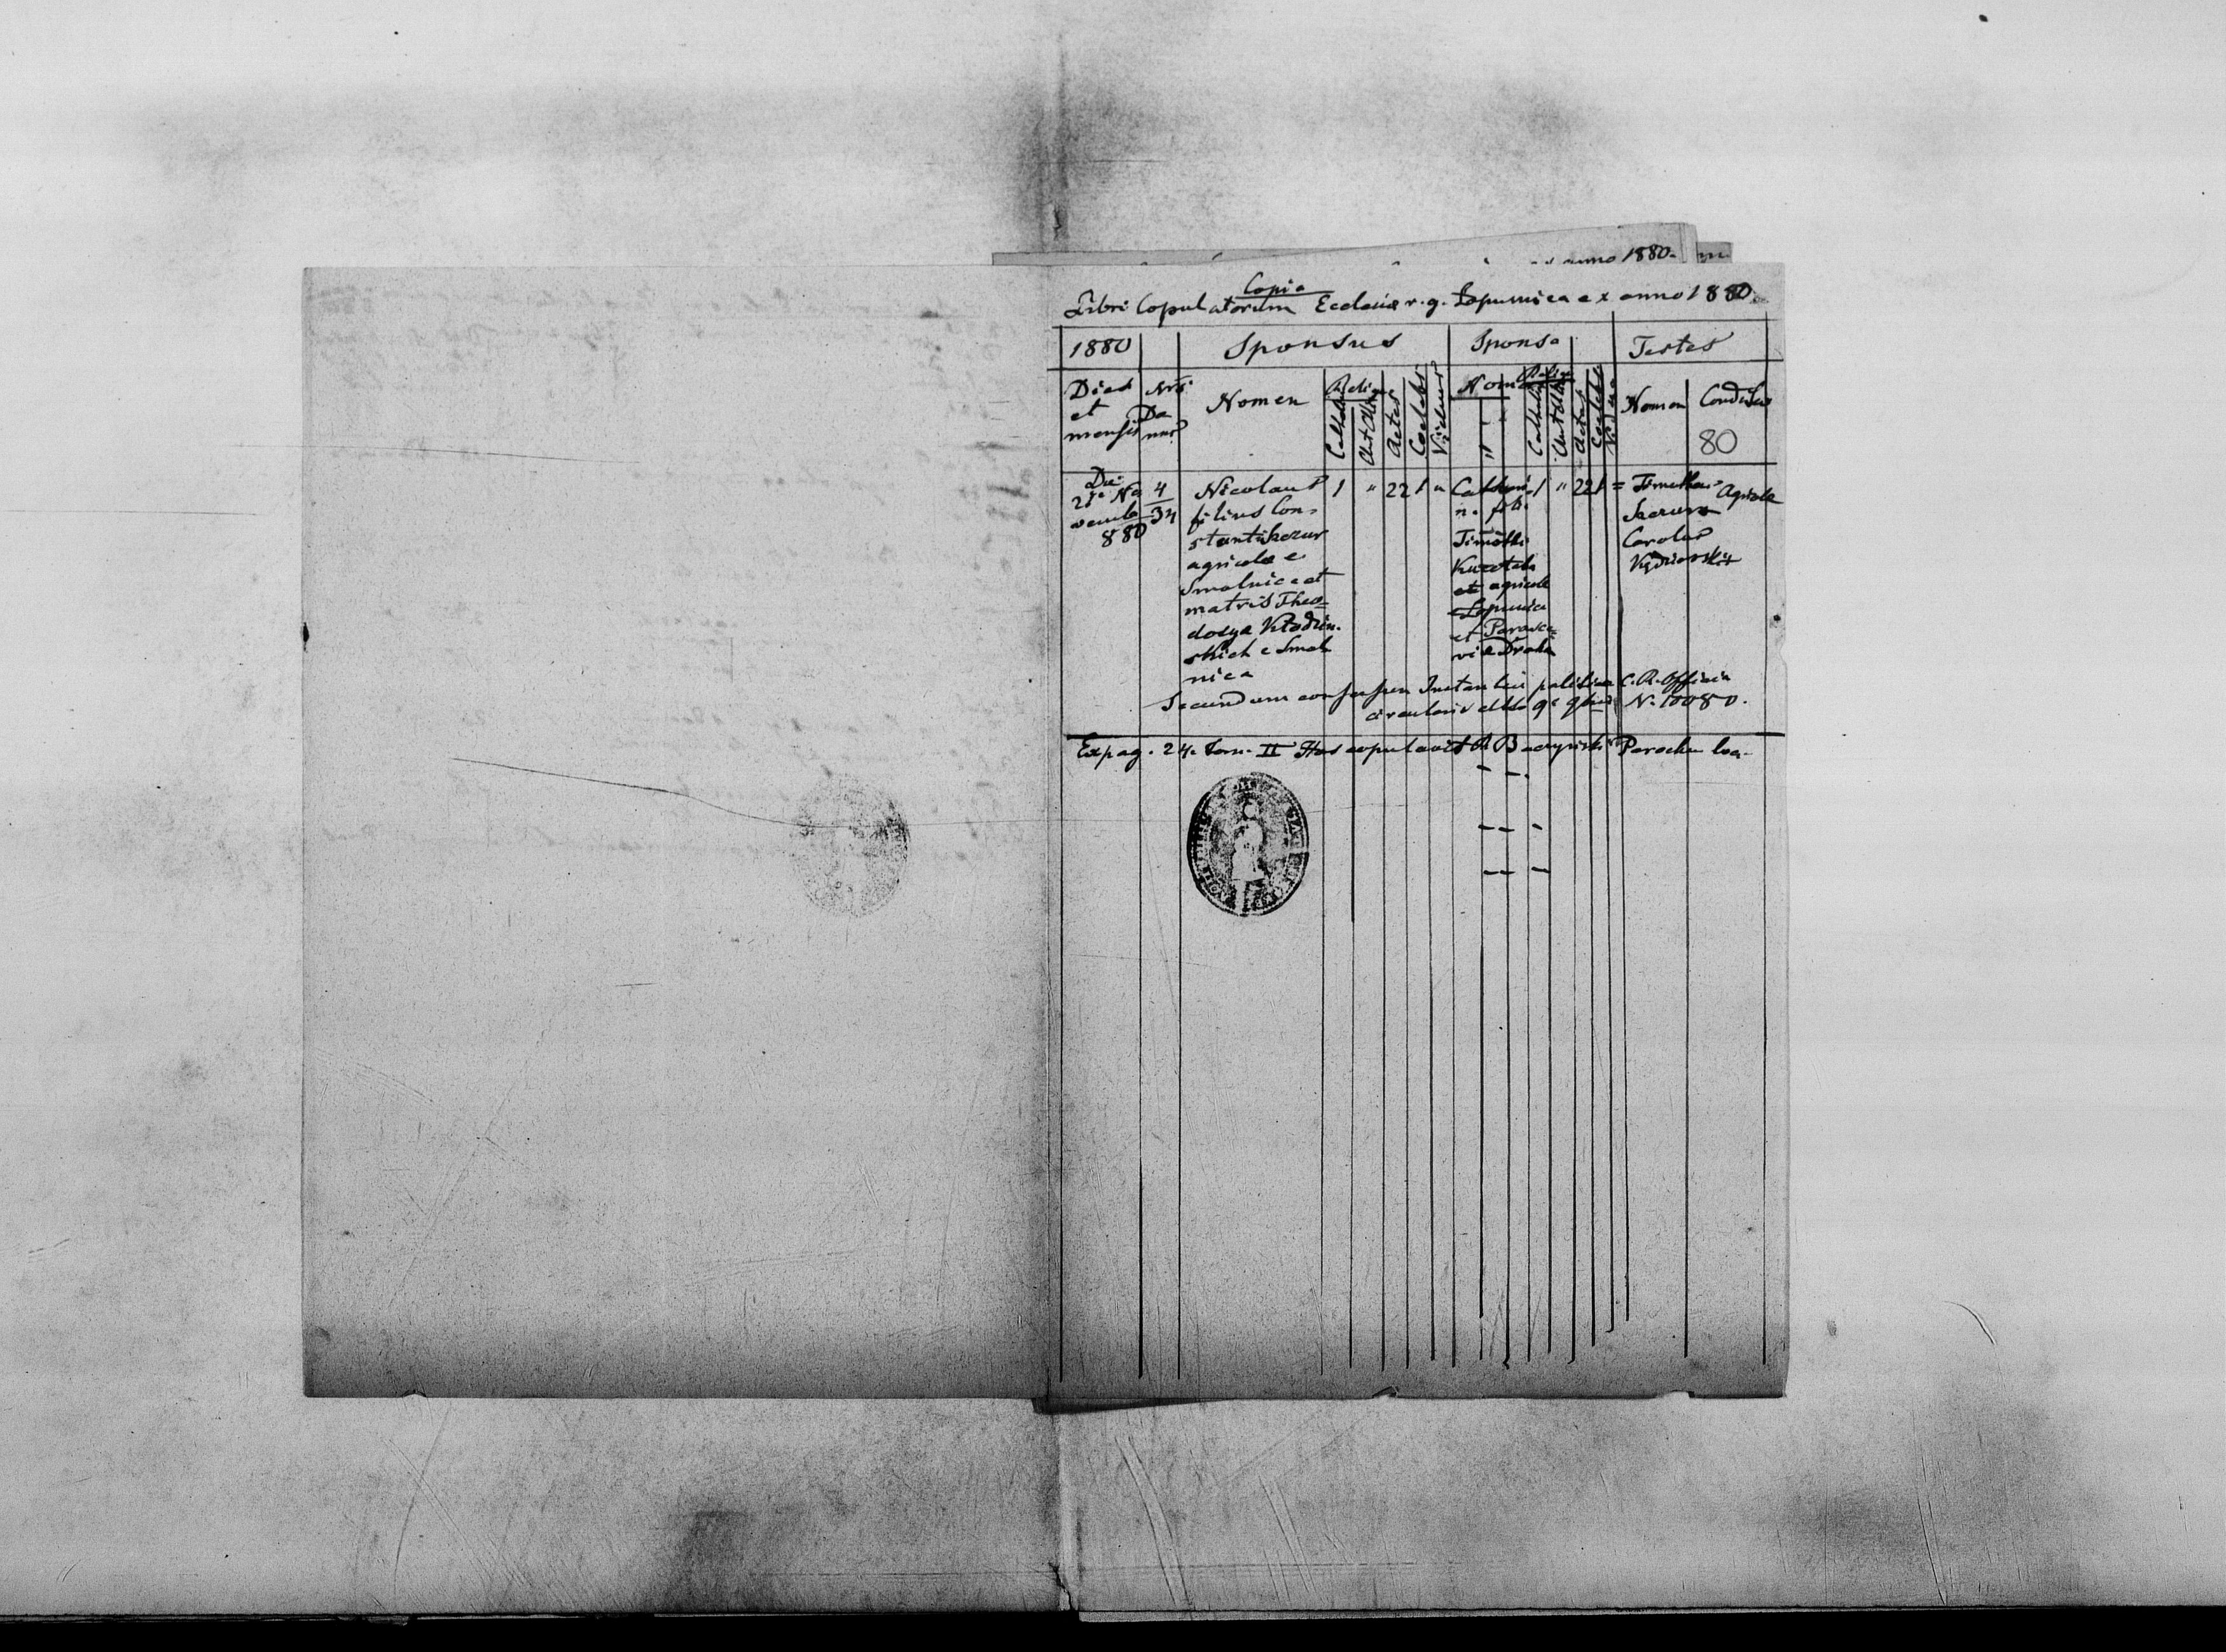 anno 1880.
Copia
Libri Copulatorum Ecclesiæ r. g. Lopusnica ex anno 1880.
1880 Sponsus Sponsa Testes
Dies et mensis
Nrs Domus
Nomen
Relig
Catholica
Aut Alia
Aetas
Coelebs
Viduus
Nomen
Relig
Catholica
Aut Alia
Aetas
Coelebs
Vidua
Nomen
Conditio
80
Die
21a No
vemb
880
4
34
Nicolaus
filius Con=
stanti
agricolae e
Smolnica et
matris Theo=
dosya Kładzin.
skich e Smol
nica
1 " 22 1 "
Cathari
n. fil.
Timothi
et agricola
Lopusnica
et Parasce=
via
1 " 22 1 =
Timotheus
Agricola
Carolus
Secundum consensum Instantiae politicae C. R. Officii
N. 10080.
Ex pag. 24. Tom. II Hos copulavit Parochus loci